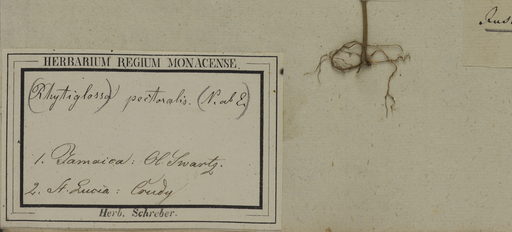 HERBARIUM REGIUM MONACENSE.
(Rhytiglossa) pectoralis. (N. ab E.)
1. Jamaica: Ol Swartz.
2. St. Lucia: Crudy
Herb. Schreber.